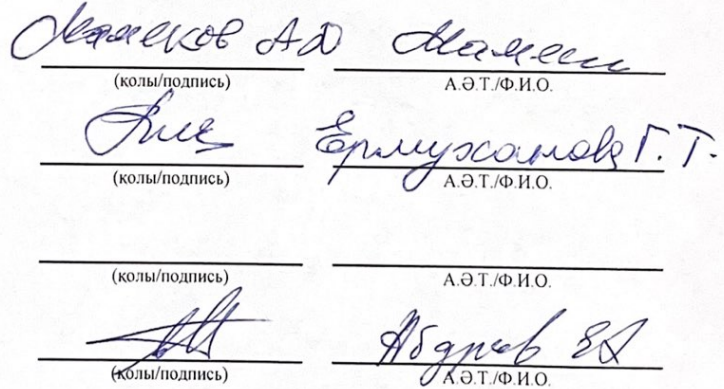 Мамеков АБ
(колы/подпись) А.Ә.Т./Ф.И.О.
Ермуханова Г. Т.
(колы/подпись) А.Ә.Т./Ф.И.О.
(колы/подпись) А.Ә.Т./Ф.И.О.
(колы/подпись) А.Ә.Т./Ф.И.О.